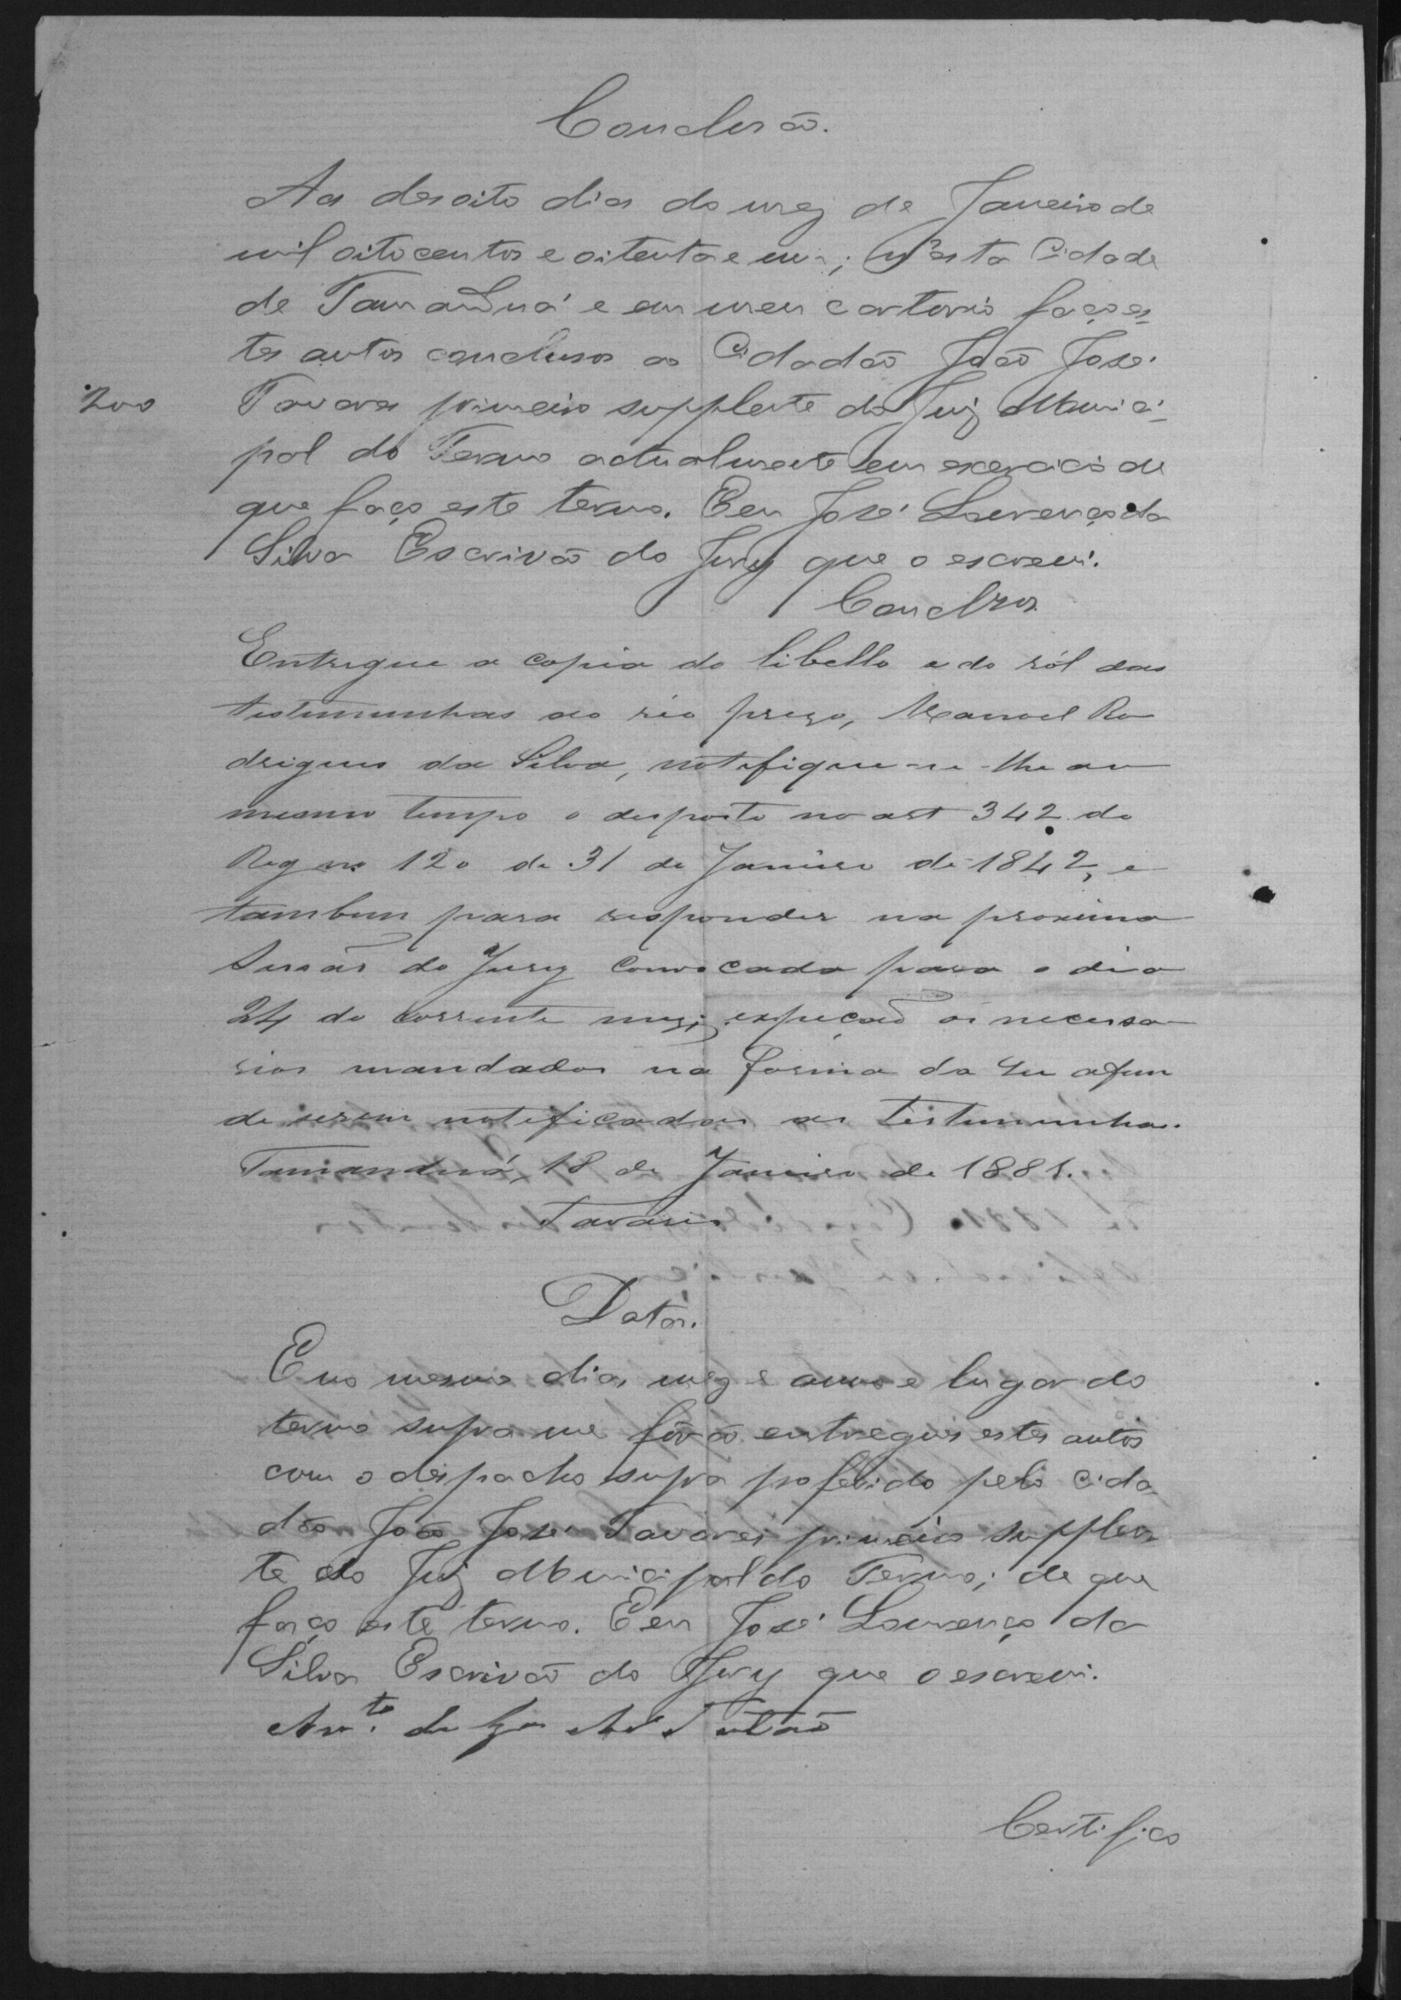 Conclusão.
Aos desoito dias do mez de Janeiro de
mil oitocentos e oitenta e um; n'esta Cidade
de Tamanduá e em meu cartorio faço es-
tes autos conclusos ao Cidadão João José
200 Tavares primeiro supplente do Juiz Munici-
pal do Termo actualmente em exercicio de
que faço este termo. Eu José Lourenço da
Silva Escrivão do Jury que o escrevi.
Conclzos
Entregue a copia do libello e do ról das
testemunhas ao réo prezo, Manoel Ro
drigues da Silva, notifique-se-lhe ao
mesmo tempo o disposto no art 342 do
Reg no 120 de 31 de Janeiro de 1842, e
tambem para responder na proxima
Sessão do Jury convocada para o dia
24 do corrente mez; expeção os necessa
rios mandados na forma da Lei afim
de serem notificadas as testemunhas.
Tamanduá, 18 de Janeiro de 1881.
Tavares
Data.
E no mesmo dia, mez e anno e lugar do
termo supra me fôrão entregues estes autos
com o despacho supra proferido pelo Cida
dão João José Tavares primeiro supplen
te do Juiz Municipal do Termo; de que
faço este termo. E eu José Lourenço da
Silva Escrivão do Jury que o escrevi.
Certifico